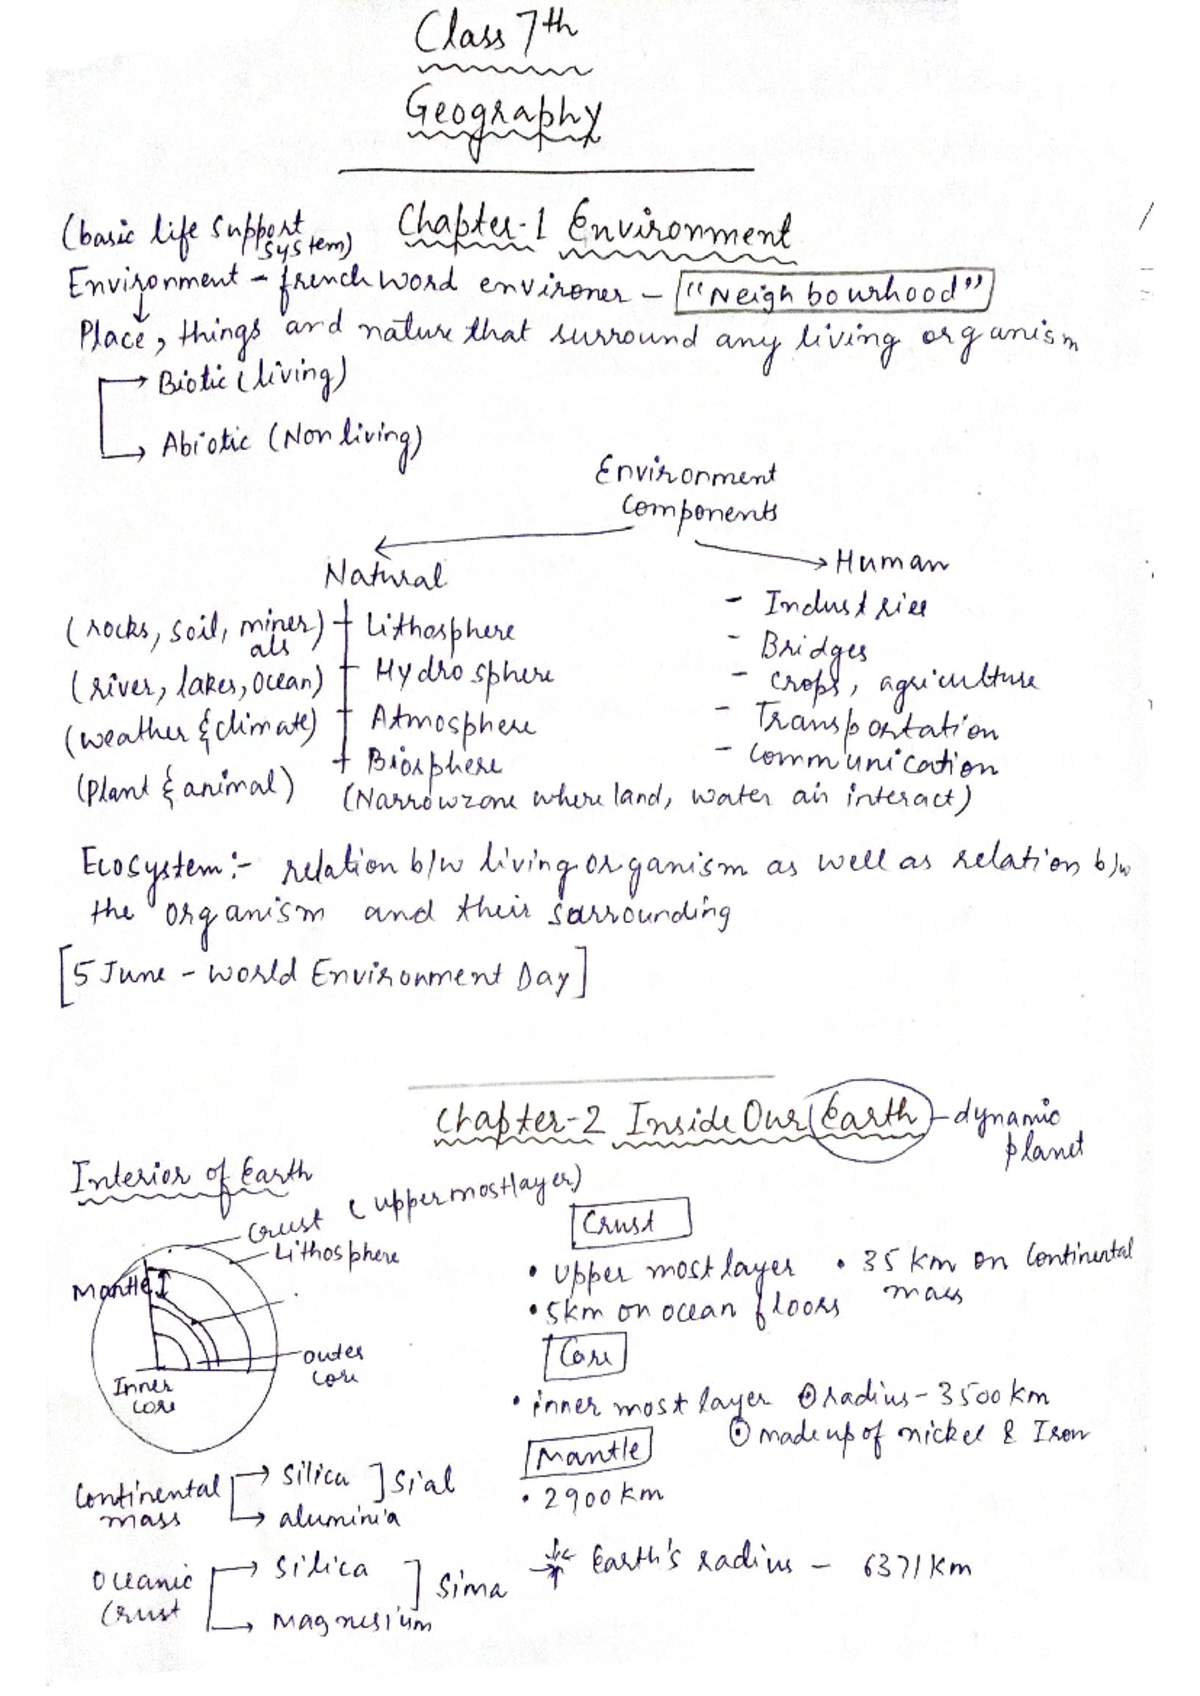 Class 7th
Geography
(basic life support system)
Chapter-1 Environment
Environment - french word environer - "Neighbourhood"
Place, things and nature that surround any living organism
→ Biotic (living)
→ Abiotic (Non living)
Environment
Components
Natural
→ Human
(rocks, soil, minerals) Lithosphere
(river, lakes, ocean) Hydrosphere
(weather & climate) Atmosphere
(Plant & animal) Biosphere
(Narrow zone where land, water air interact)
- Industries
- Bridges
- crops, agriculture
- Transportation
- Communication
Ecosystem:- relation b/w living organism as well as relation b/w
the organism and their sarrounding
[5 June - World Environment Day]
Chapter-2 Inside Our Earth - dynamic planet
Interior of Earth
Crust (uppermost layer)
Lithosphere
Mantle
outer core
Inner core
Crust
• upper most layer • 35 km on Continental mass
• 5km on ocean floors
Core
• inner most layer ⊙ radius - 3500 km
⊙ made up of nickel & Iron
Mantle
• 2900 km
Continental mass → Silica ] Sial
→ aluminia
Oceanic Crust → Silica ] Sima
→ Magnesium
Earth's radius - 6371 km